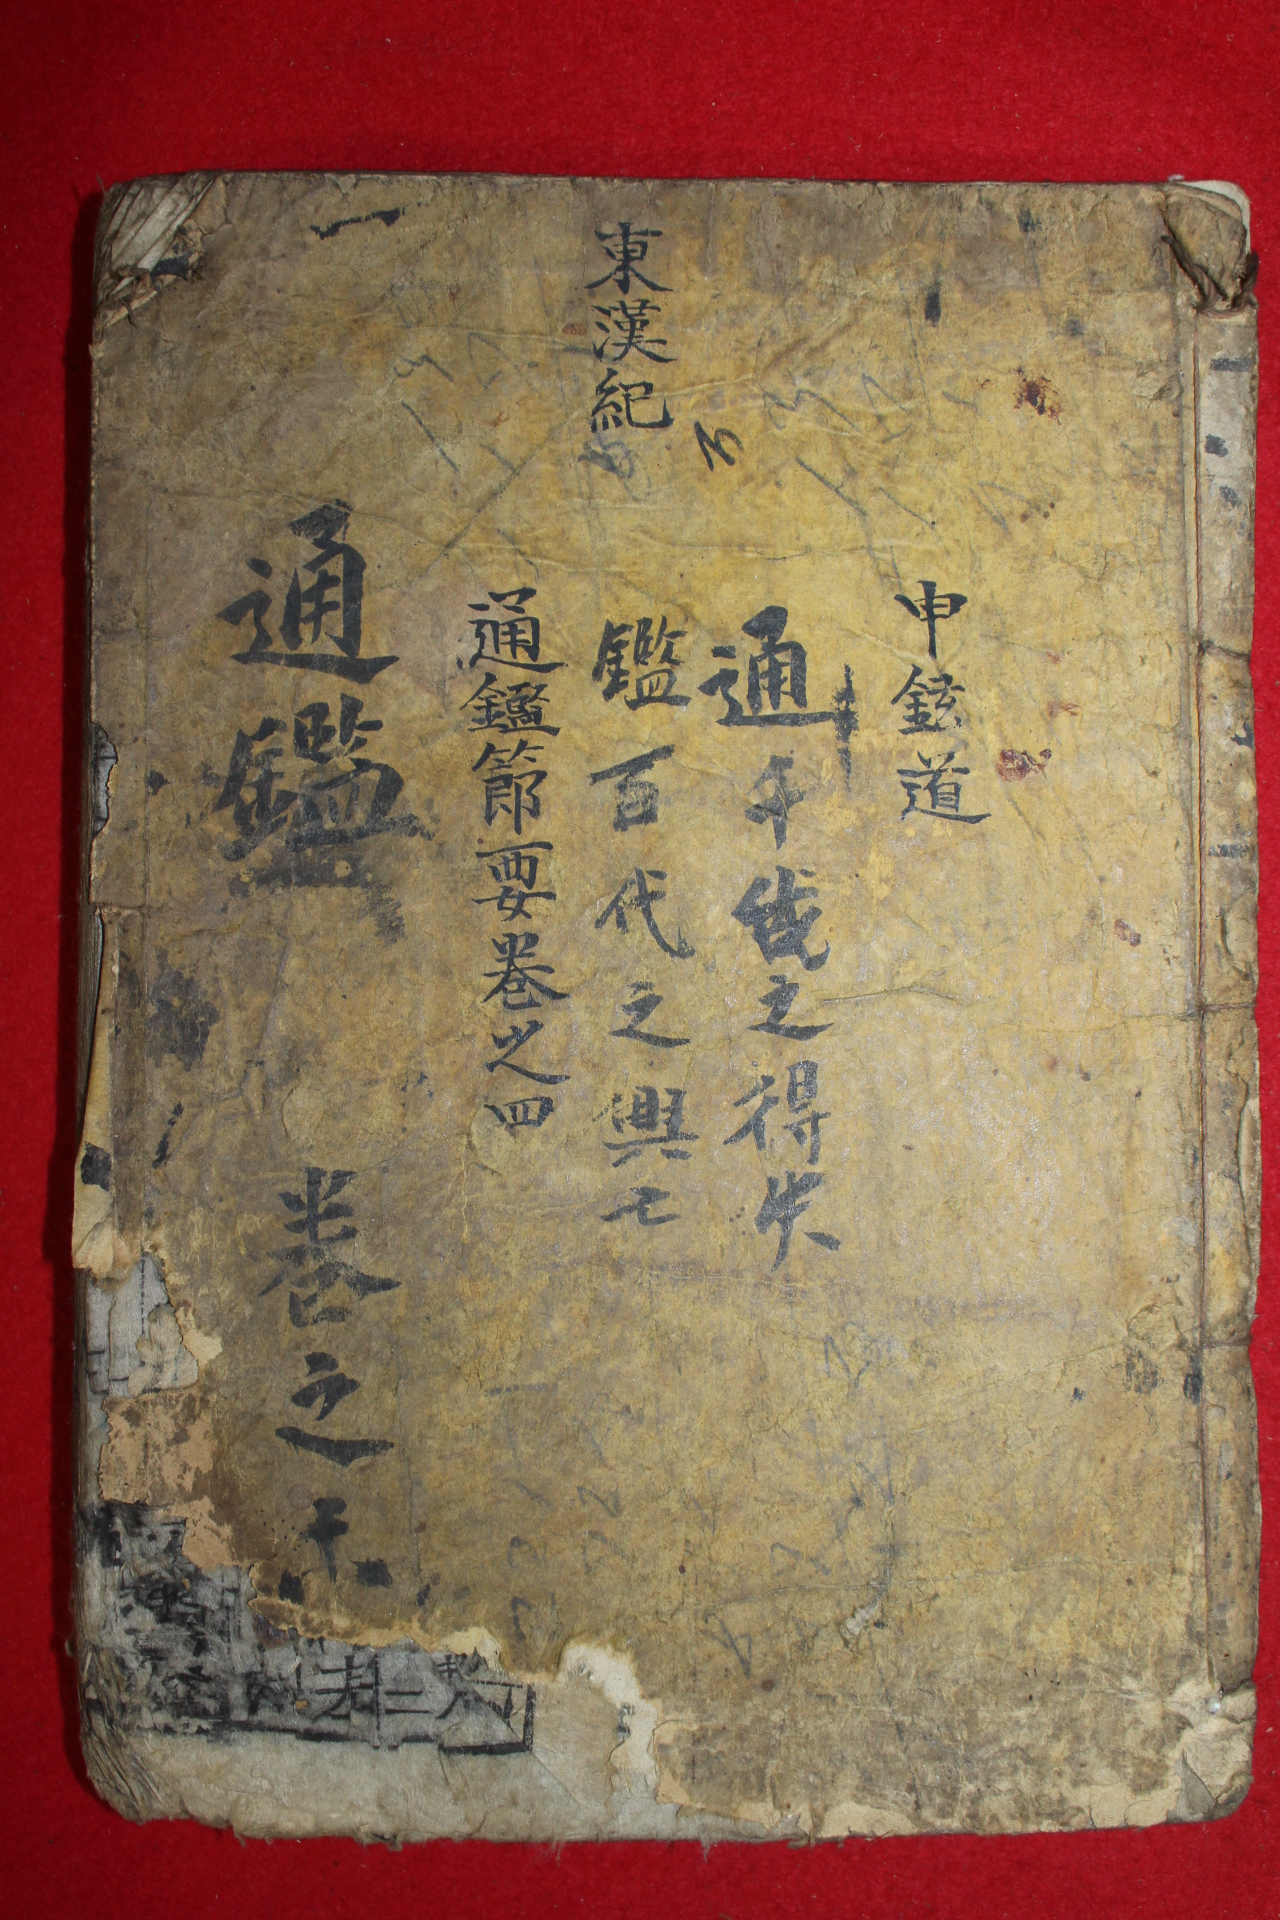 申鉉道
通千歲之得失
鑑百代之興亡
東漢紀
通鑑節要卷之四
一
通鑑 卷之